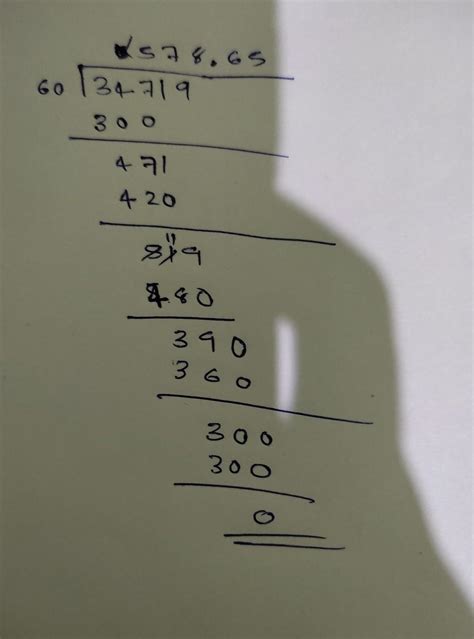 578.65
60 34719
300
471
420
519
480
390
360
300
300
0